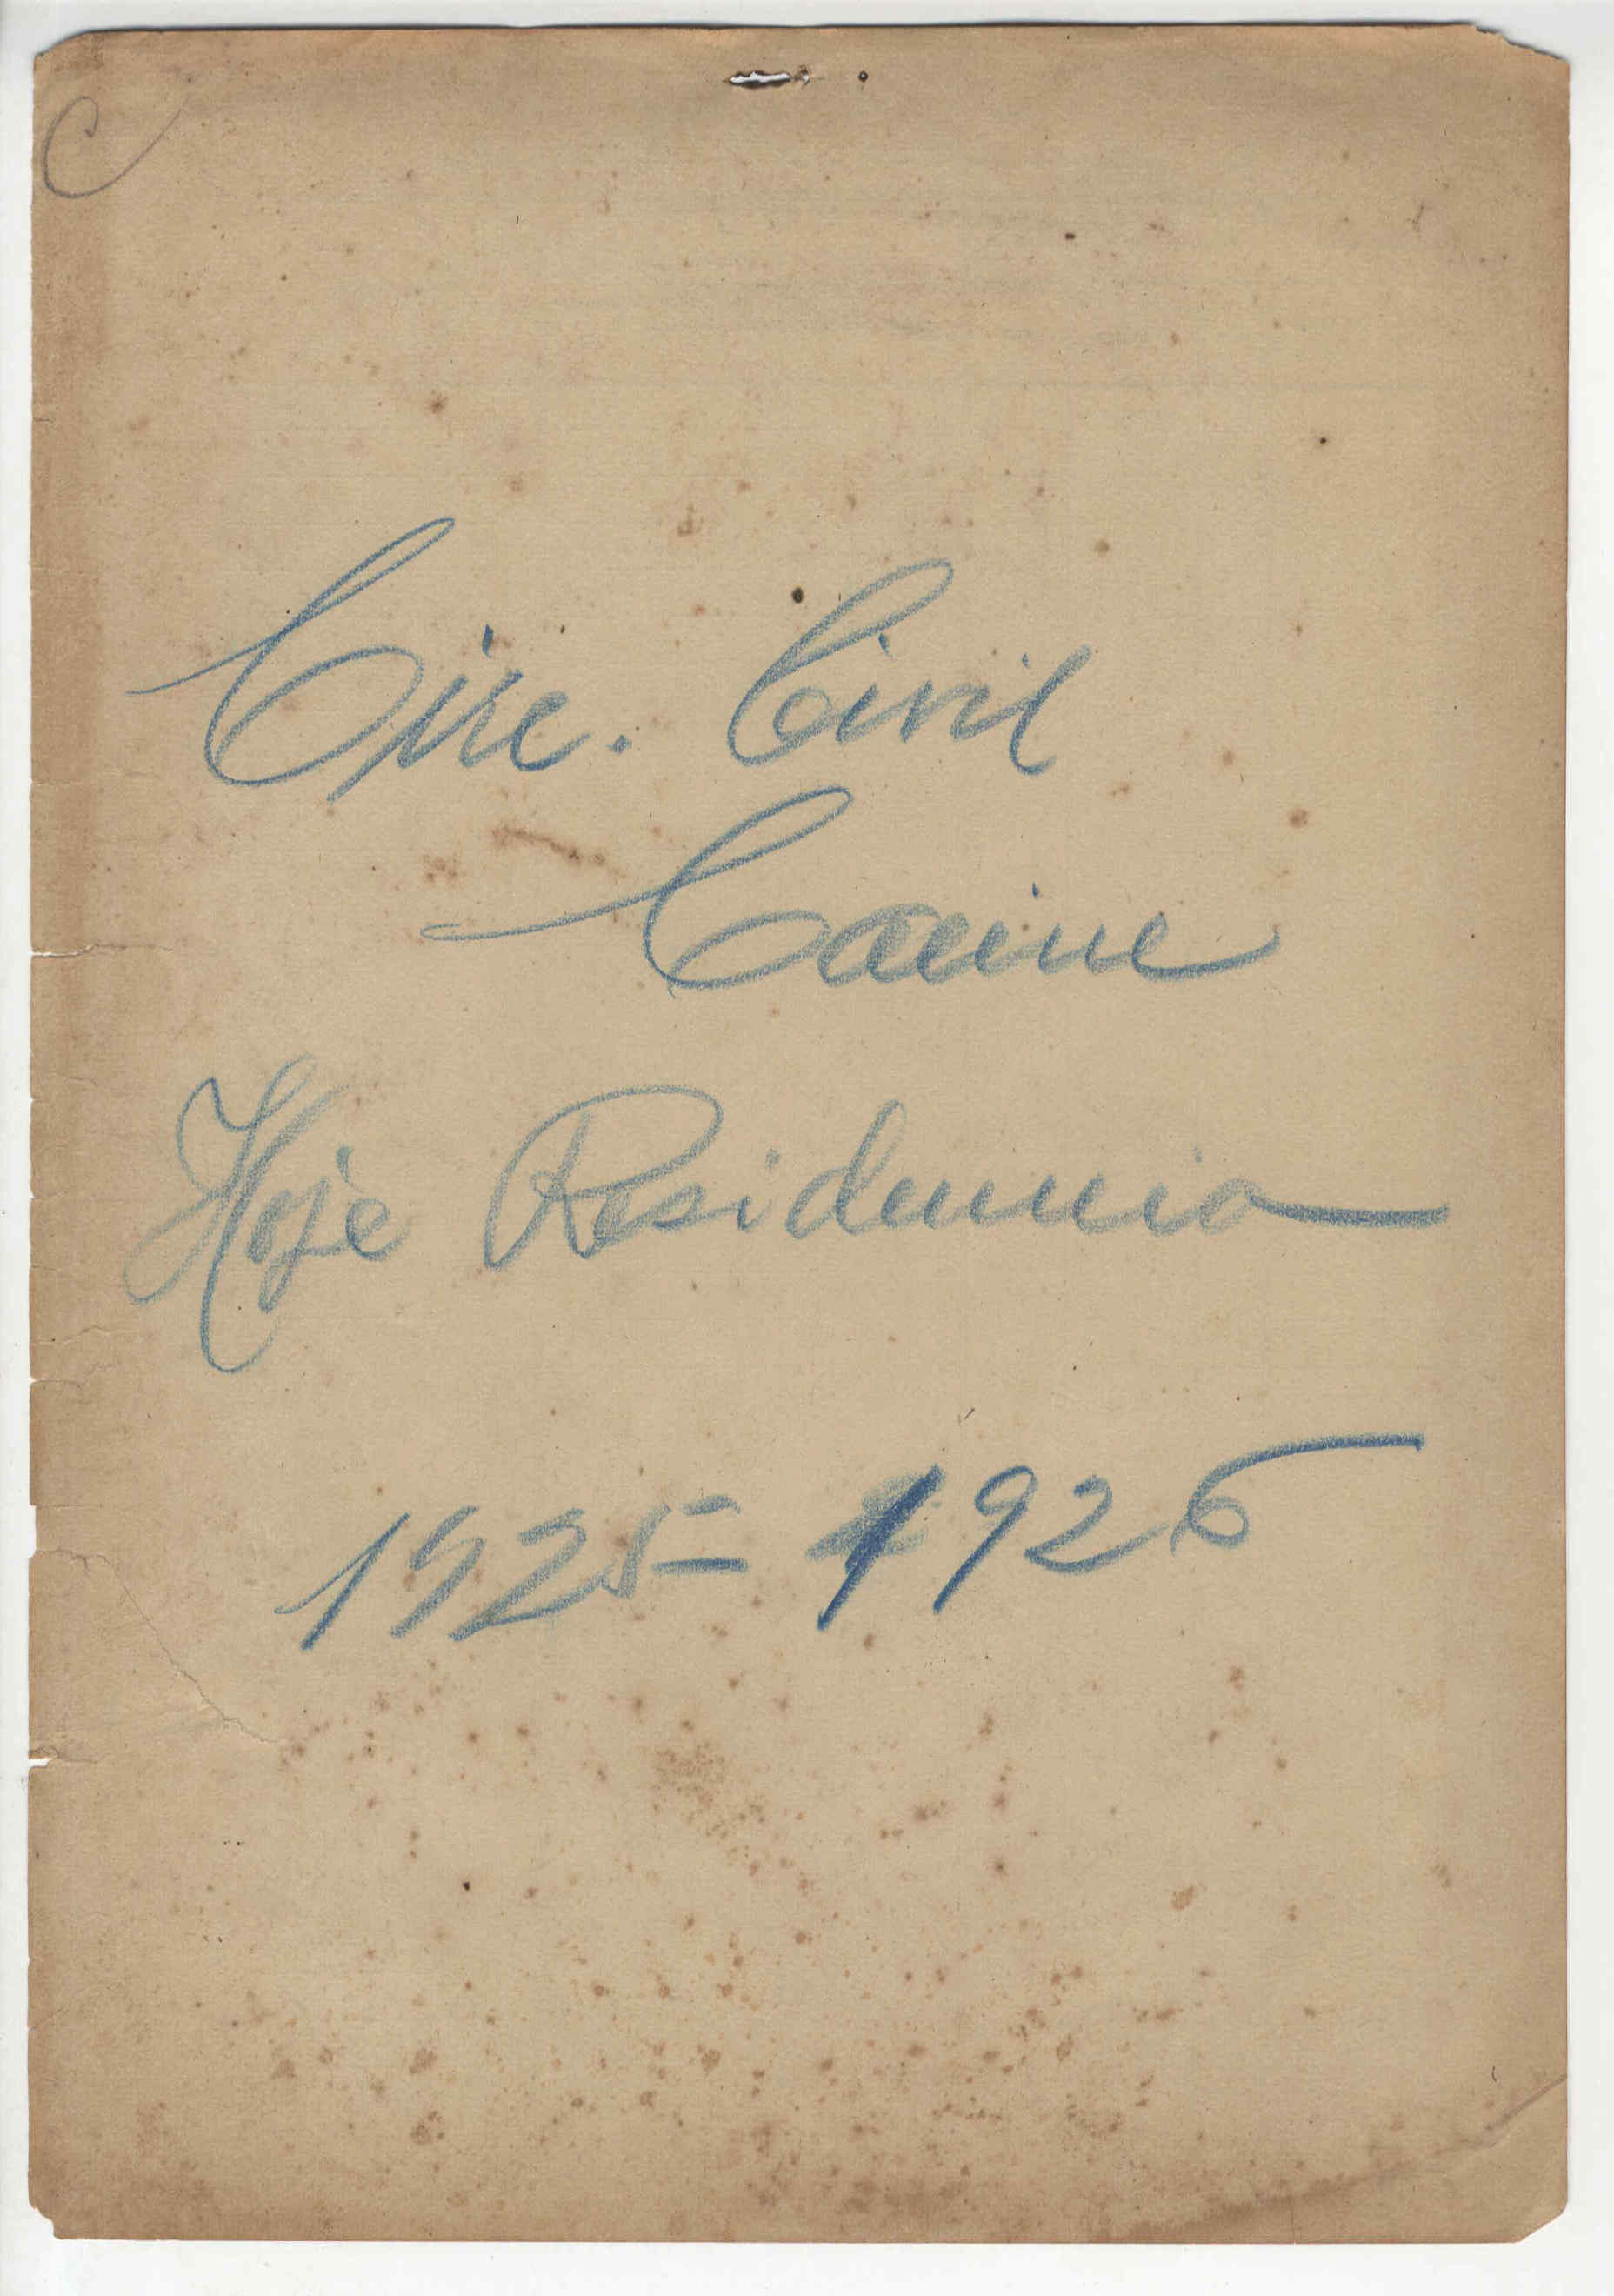 C
Circ. Civil
Cacine
Hoje Residencia
1925 = 1926